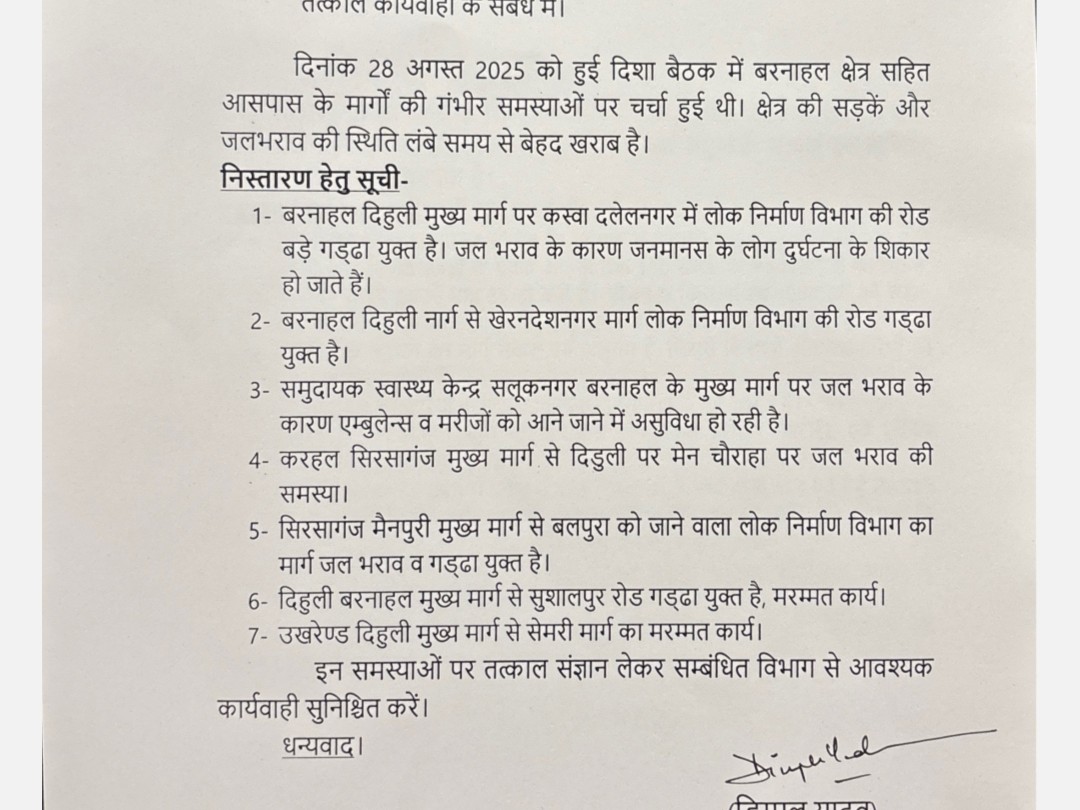 तत्काल कार्यवाही के संबंध में।
दिनांक 28 अगस्त 2025 को हुई दिशा बैठक में बरनाहल क्षेत्र सहित
आसपास के मार्गों की गंभीर समस्याओं पर चर्चा हुई थी। क्षेत्र की सड़कें और
जलभराव की स्थिति लंबे समय से बेहद खराब है।
निस्तारण हेतु सूची-
1- बरनाहल दिहुली मुख्य मार्ग पर कस्वा दलेलनगर में लोक निर्माण विभाग की रोड
बड़े गड्ढा युक्त है। जल भराव के कारण जनमानस के लोग दुर्घटना के शिकार
हो जाते हैं।
2- बरनाहल दिहुली नार्ग से खेरनदेशनगर मार्ग लोक निर्माण विभाग की रोड गड्ढा
युक्त है।
3- समुदायक स्वास्थ्य केन्द्र सलूकनगर बरनाहल के मुख्य मार्ग पर जल भराव के
कारण एम्बुलेन्स व मरीजों को आने जाने में असुविधा हो रही है।
4- करहल सिरसागंज मुख्य मार्ग से दिडुली पर मेन चौराहा पर जल भराव की
समस्या।
5- सिरसागंज मैनपुरी मुख्य मार्ग से बलपुरा को जाने वाला लोक निर्माण विभाग का
मार्ग जल भराव व गड्ढा युक्त है।
6- दिहुली बरनाहल मुख्य मार्ग से सुशालपुर रोड गड्ढा युक्त है, मरम्मत कार्य।
7- उखरेण्ड दिहुली मुख्य मार्ग से सेमरी मार्ग का मरम्मत कार्य।
इन समस्याओं पर तत्काल संज्ञान लेकर सम्बंधित विभाग से आवश्यक
कार्यवाही सुनिश्चित करें।
धन्यवाद।
(डिम्पल यादव)